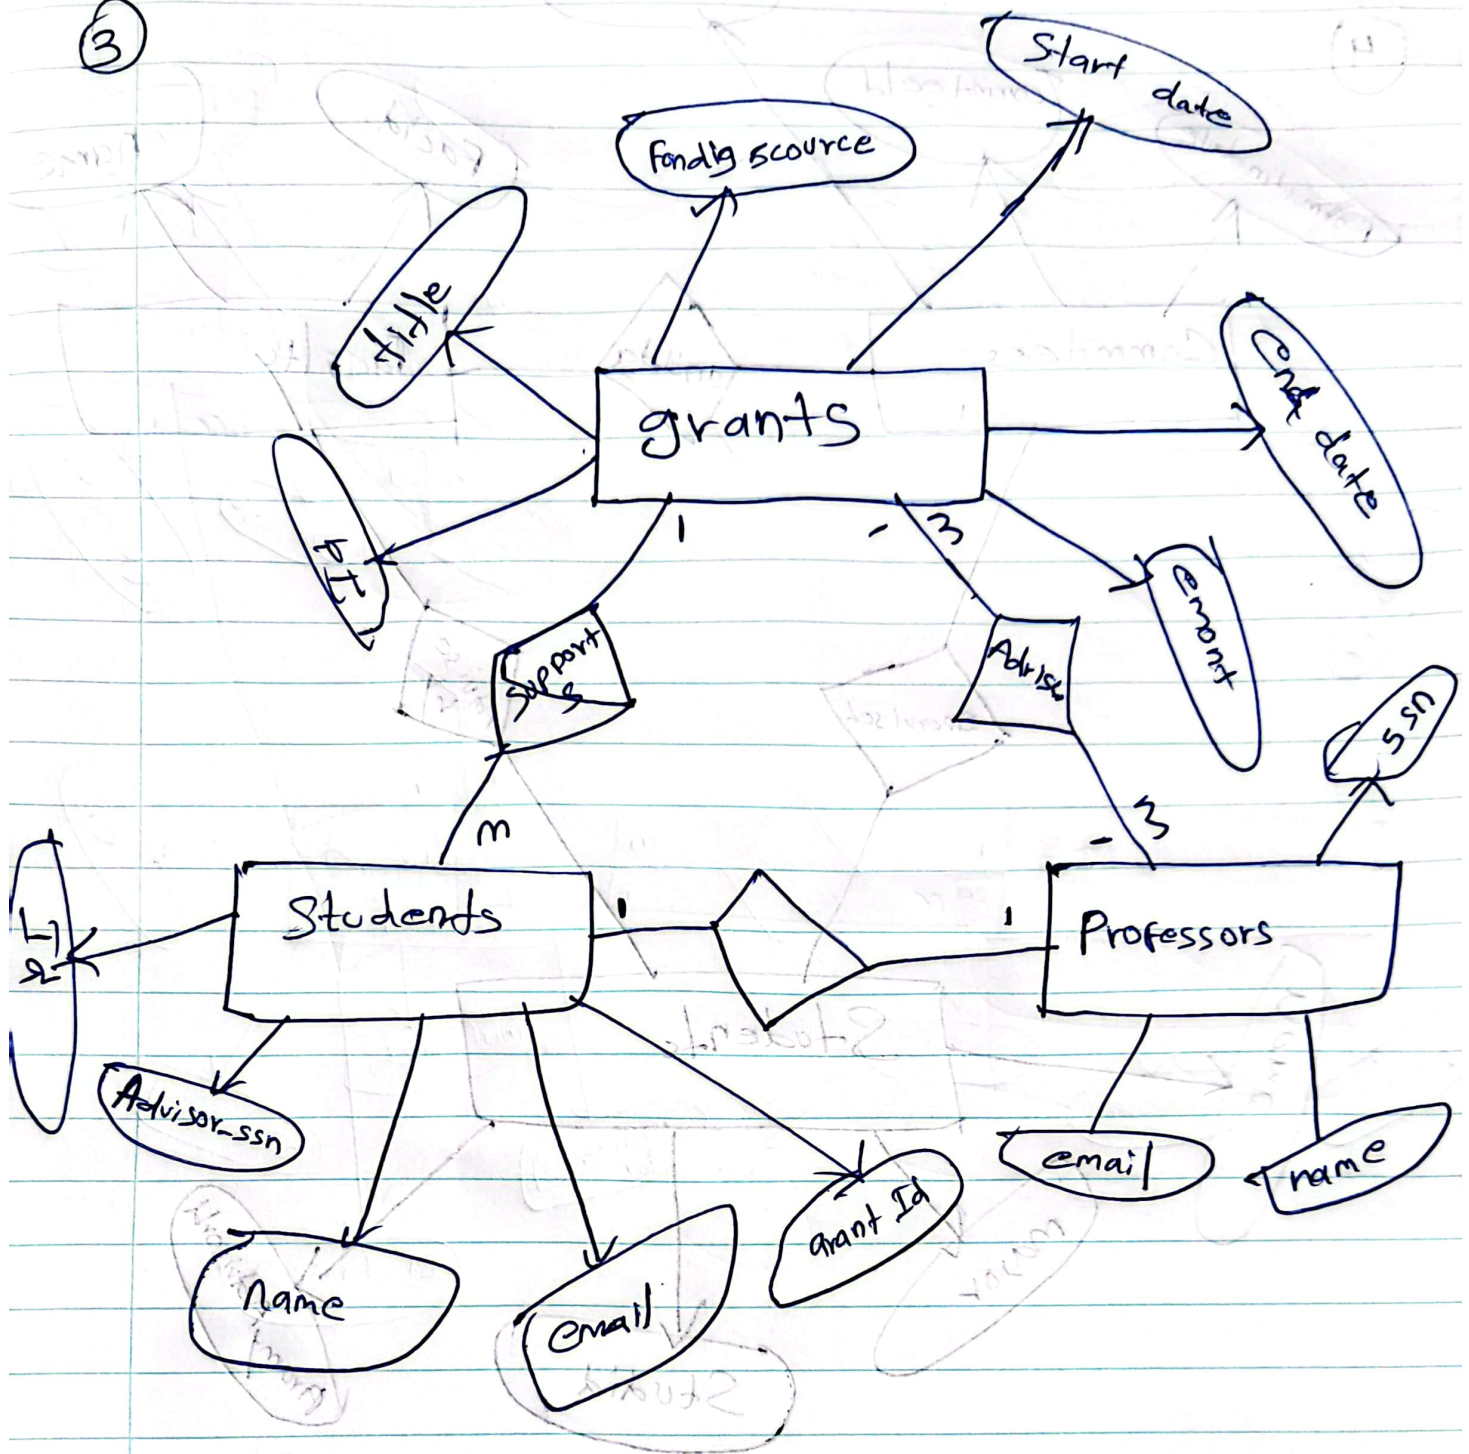 3
Start date
Fondig scource
title
grants
End date
PI
1
- 3
emont
Supports
Advise
ssn
m
- 3
Students
1
1
Professors
Advisor-ssn
email
name
grant Id
name
email